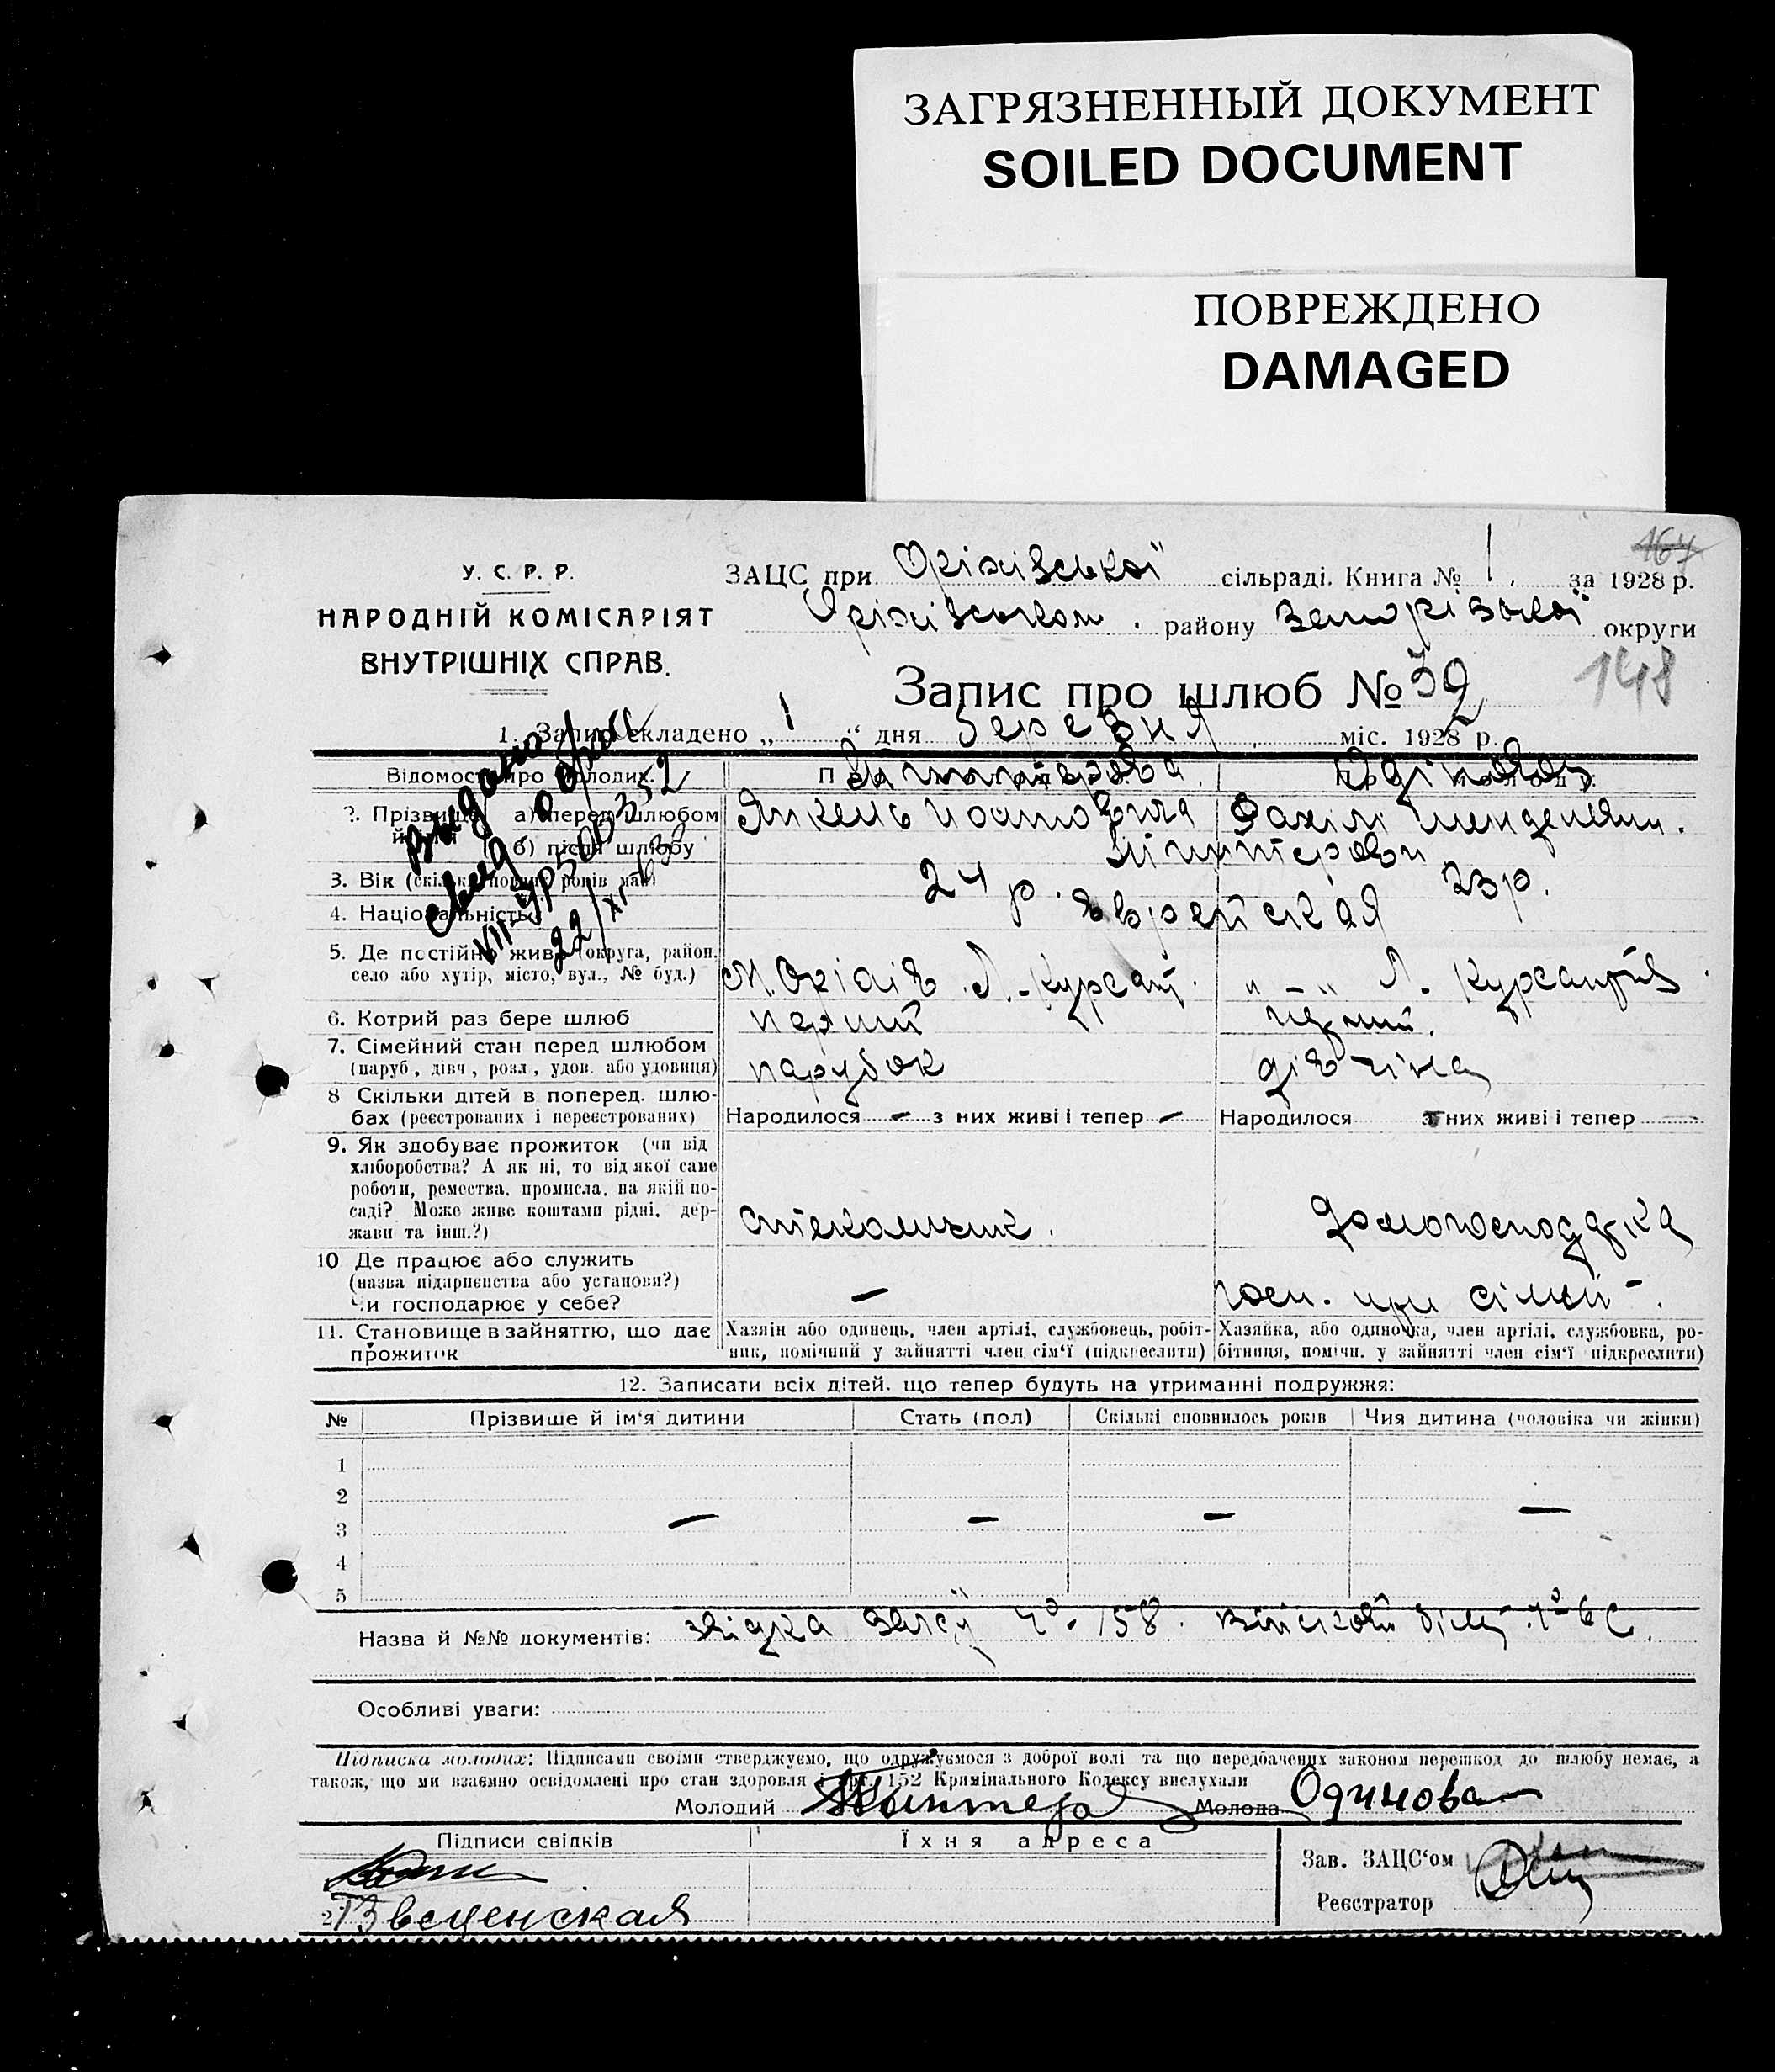 ЗАГРЯЗНЕННЫЙ ДОКУМЕНТ
SOILED DOCUMENT
ПОВРЕЖДЕНО
DAMAGED
164
У. С. Р. Р.
НАРОДНІЙ КОМІСАРІЯТ
ВНУТРІШНІХ СПРАВ.
ЗАЦС при Оріхівської сільраді. Книга № 1. за 1928 р.
Оріхівськом району Запорізької округи
148
Запис про шлюб № 39
1. Запис складено „ 1 “ дня березня міс. 1928 р.
Видано
22/XI-63
Відомості про молодих.
Одінова
2. Прізвище й ім'я а) перед шлюбом
Янкель
б) після шлюбу
3. Вік (скільки повних років має)
24 р. 23 р.
4. Національність
яврейская
5. Де постійно живе (округа, район, село або хутір, місто, вул., № буд.)
М. Оріхів Л.-Курсант. " — " Л. Курсантів
6. Котрий раз бере шлюб
перший перший.
7. Сімейний стан перед шлюбом
(паруб., дівч., розл., удов. або удовиця)
парубок дівчіна
8 Скільки дітей в поперед. шлю-
бах (реєстрованих і нереєстрованих)
Народилося – з них живі і тепер –
Народилося з них живі і тепер
9. Як здобуває прожиток (чи від
хліборобства? А як ні, то від якої саме
роботи, ремества, промисла, на якій по-
саді? Може живе коштами рідні, дер-
жави та інш.?)
стекольчик. домогосподарка
10 Де працює або служить
(назва підприємства або установи?)
Чи господарює у себе?
— госп. при сімьи -.
11. Становище в зайняттю, що дає
прожиток
Хазяїн або одинець, член артілі, службовець, робіт-
ник, помічний у зайнятті член сім'ї (підкреслити)
Хазяйка, або одиночка, член артілі, службовка, ро-
бітниця, помічн. у зайнятті член сім'ї підкреслити)
12. Записати всіх дітей, що тепер будуть на утриманні подружжя:
№ Прізвише й ім'я дитини Стать (пол) Скількі сповнилось років Чия дитина (чоловіка чи жінки)
1
2
3 — — — —
4
5
Назва й №№ документів: звідка 158.
Особливі уваги:
Підписка молодих: Підписами своїми стверджуємо, що одружуємося з доброї волі та що передбачених законом перешкод до шлюбу немає, а
також, що ми взаємно освідомлені про стан здоровля і арт. 152 Крамінального Кодексу вислухали
Молодий Молода Одинова
Підписи свідків Їхня адреса
Зав. ЗАЦС'ом
2 Введенская
Реєстратор